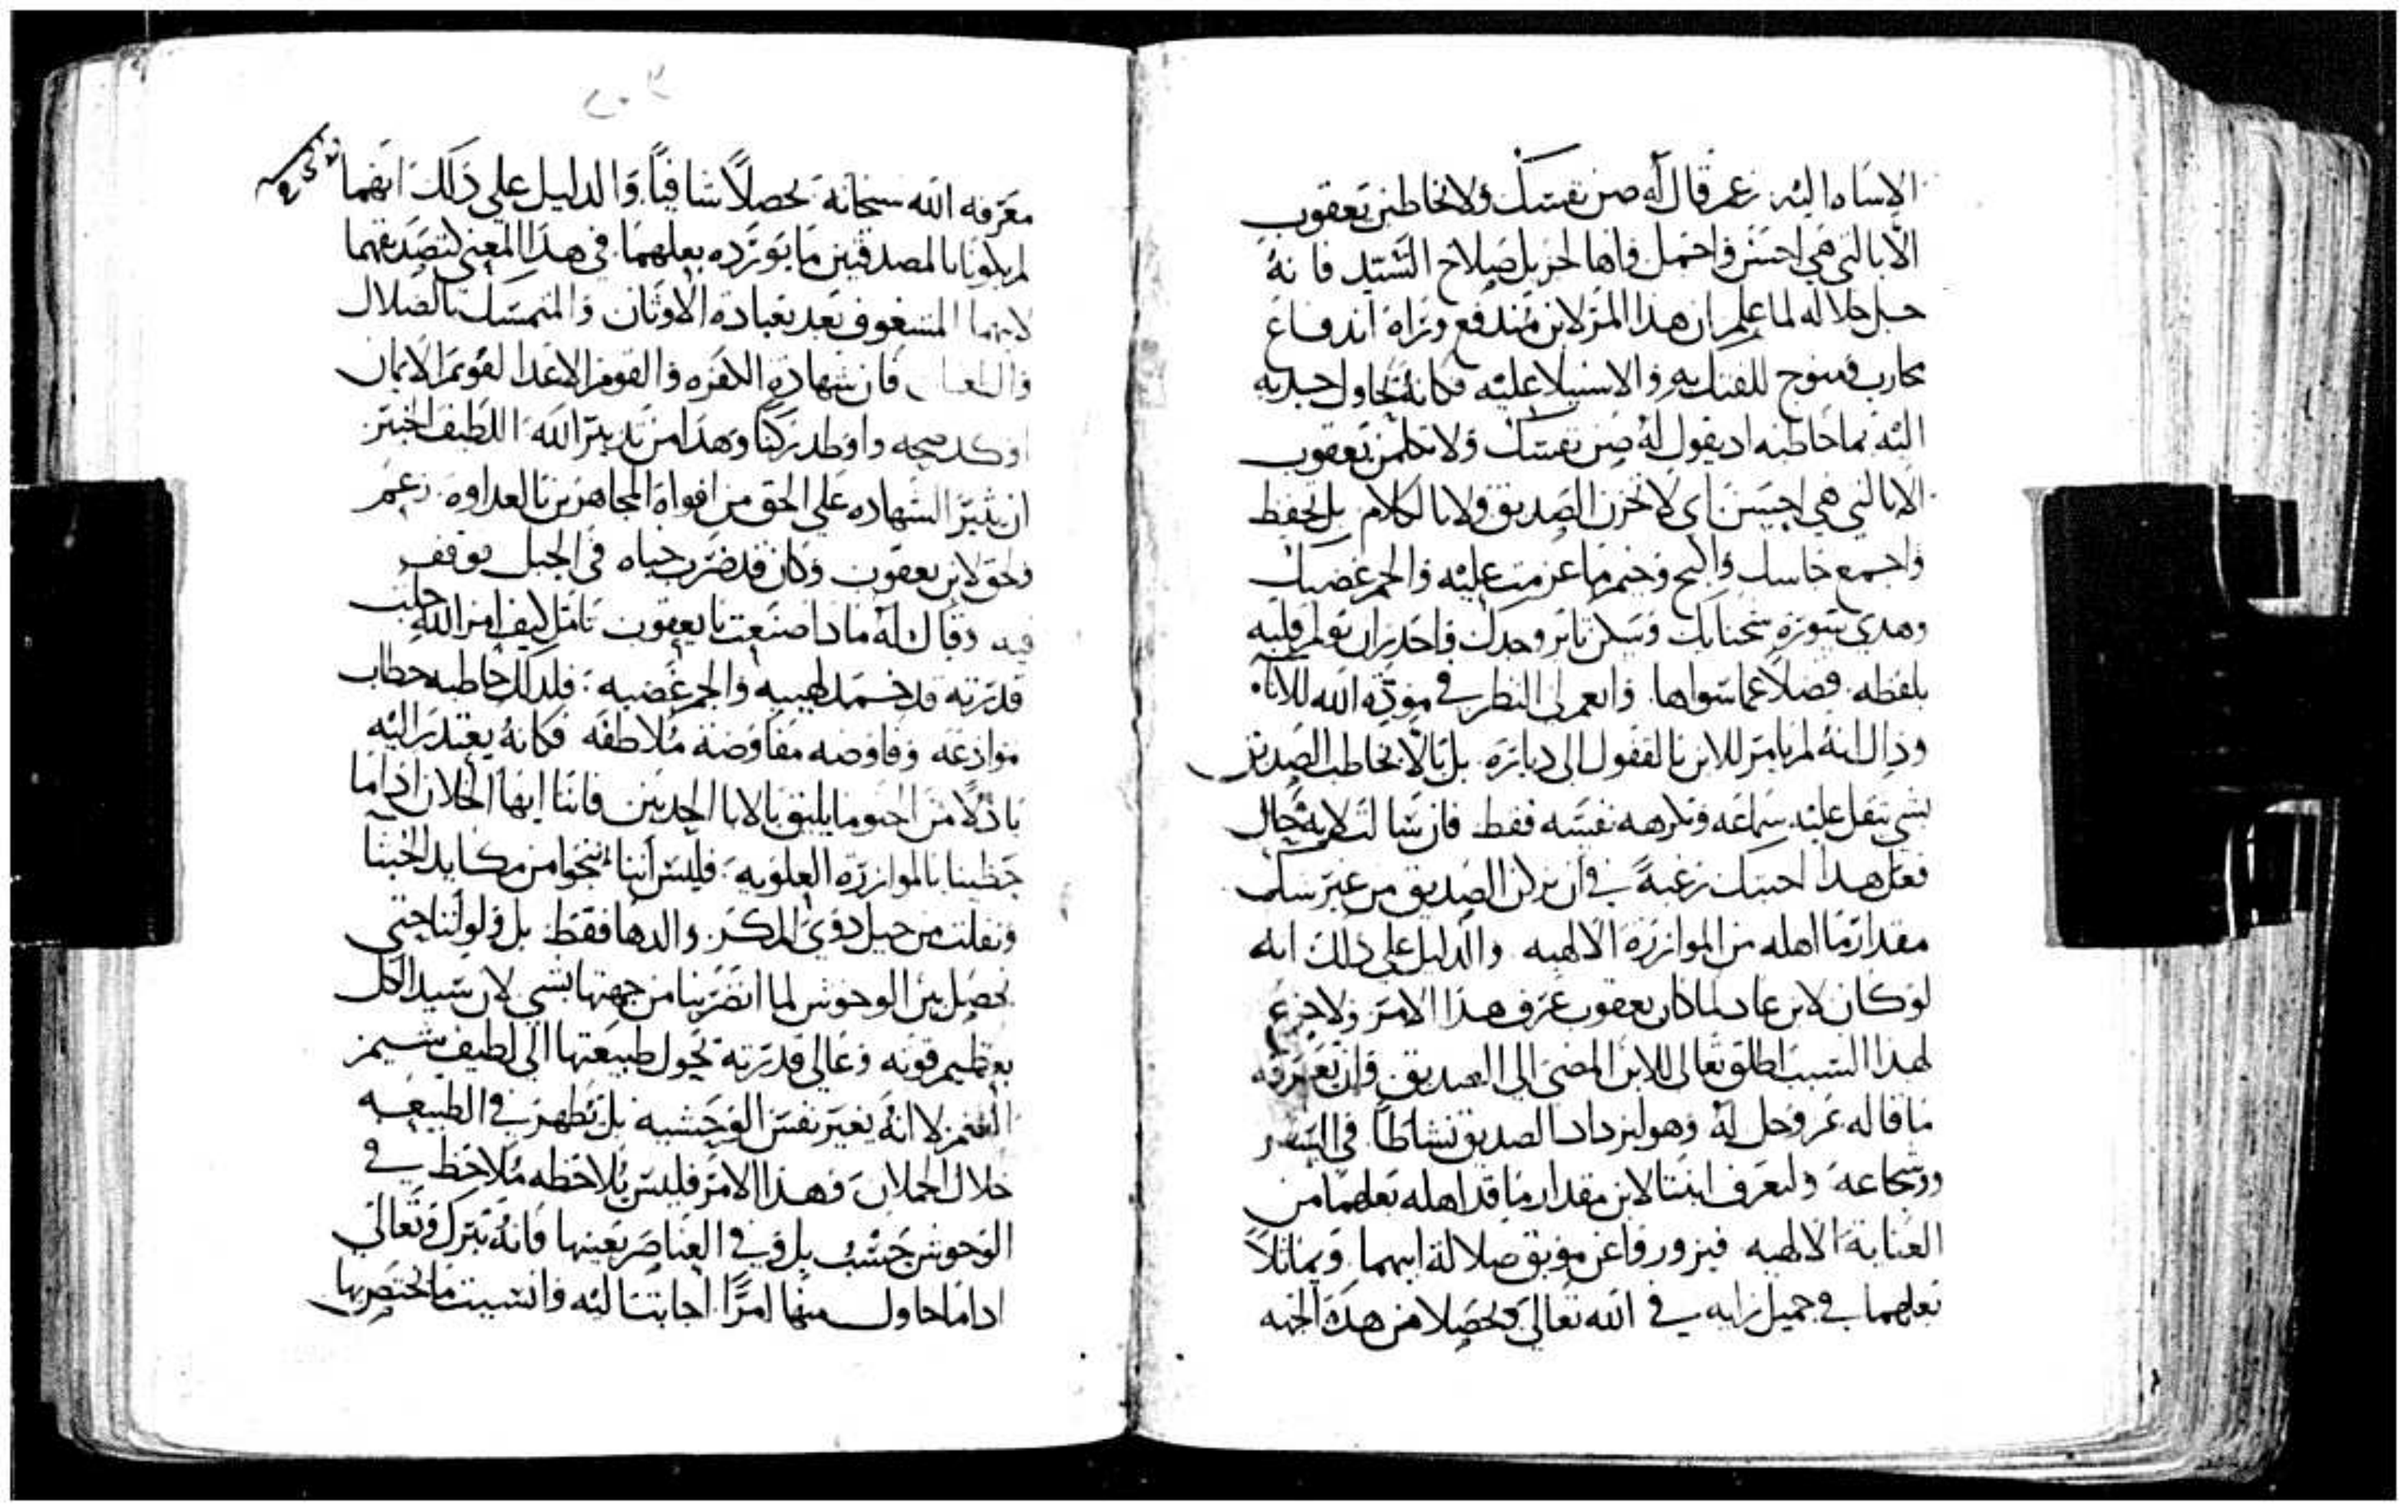 الاساه اليه زعم قال له صن نفسك ولا تخاطبن يعقوب
الا بالتي هي احسن واجمل فانها لحزيل صلاح السيد فانه
جل جلاله لما علم ان هذا المز لابن مندفع وراه اندفاع
محارب للفتك به والاستيلا عليه فكانه يحاول جذبه
اليه بما خاطبه اد يقول له صن نفسك ولا تكلمن يعقوب
الا بالتي هي احسن اي لا تحزن الصديق ولا بالكلام بل احفظ
واجمع جاسك واكبح وخم ما عزمت عليه والجم غضبك
وهدي سورة سحنايك وسكن تاير وحدك واحدر ان تولم قلبه
بلفظه فضلا عما سواها وانعم لي النظر في مودة الله للاناه
وداك انه لم يامر للابن بالقفول الى دياره بل بالا يخاطب الصديق
بشي يثقل عليه سماعه وتكرهه نفسه فقط فان سالت لايه حال
فعل هذا اجبتك رغبة في ان يركن الصديق من غير شك
مقدار ما اهله من الموازرة الالهيه والدليل على ذلك انه
لو كان لابن عاد لما كان يعقوب عرف هذا الامر ولا جزع
لهذا السبب اطلق تعالى للابن المضي الى الصديق وان تعرفه
ما قاله عز وجل له وهو ليزداد الصديق نشاطا في السير
وشجاعه ولتعرف ابنتا لابن مقدار ما قد اهله بعلهما من
العناية الالهيه فيزور قاعن موبق ضلالة ابيهما ويماثلا
بعلهما في جميل رايه في الله تعالى وتحصلا من هده الجهه
معرفه الله سبحانه تحصلا شافيا والدليل على ذلك انهما
لم يكونا بالمصدقتين ما يورده بعلهما في هذا المعنى كتصديقهما
لابيهما المشغوف بعد بعبادة الاوثان والمتمسك بالضلال
فان شهادة الكفره والقوم الاعدا لقويم الايمان
اوكد صحه واوطد ركنا وهذا من تدبير الله اللطيف الخبير
ان يثير الشهاده على الحق من افواه المجاهرين بالعداوه زعم
ولحق لابن يعقوب وكان قد ضرب خباه في الجبل فوقف
فيه وقال له ما دا صنعت يا يعقوب تامل كيف امر الله جلت
قدرته قد خمد لهيبه والجم غضبه فلدلك خاطبه خطاب
موادعه وفاوضه مفاوضة ملاطفه فكانه يعتدر اليه
بادلا من الحنو ما يليق بالابا الحديين فاننا ايها الخلان ادا ما
حظينا بالموازرة العلويه فليس اننا ننجوا من مكايد الخبثا
ونفلت من حيل دوي المكر والدها فقط بل ولو اننا حتى
نحصل بين الوحوش لما انضررنا من جهتها بشي لان سيد الكل
بعظيم قوته وعالي قدرته يحول طبيعتها الى لطيف شيم
الغنم لا انه يغير نفس الوحشيه بل تظهر في الطبيعه
خلال الحملان وهذا الامر فليس يلاحظه ملاحظ في
الوحوش حسب بل وفي العناصر بعينها فانه تبرك وتعالى
ادا ما حاول منها امرا اجابت اليه وانسيت ما يختص بها